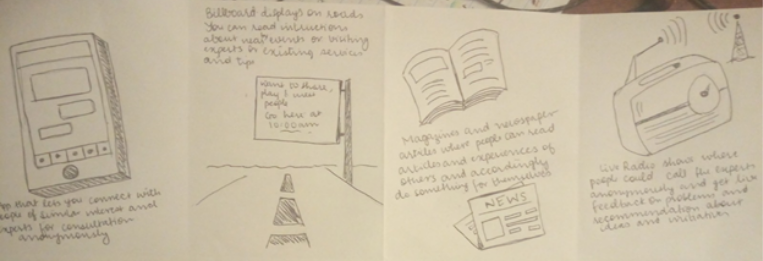 that lets you connect with
people of similar interest and
experts for consultation
anonymously
Billboard displays on roads
You can read instructions
about near events or visiting
experts or existing services
and tips
play & meet
people
here at
10:00am
Magazines and newspaper
articles where people can read
articles and experiences of
others and accordingly
do something for themselves
NEWS
Live Radio shows where
people could call the experts
anonymously and get live
feedback on problems and
recommendation about
ideas and